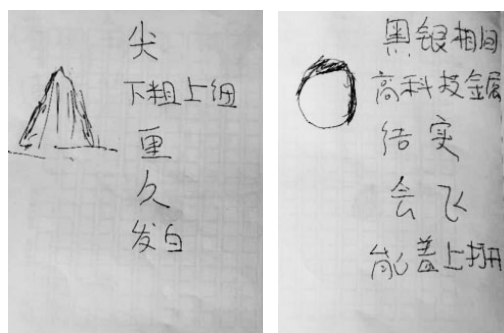 尖
下粗上细
重
久
发白
黑银相间
高科技金属
结实
会飞
能盖上拥